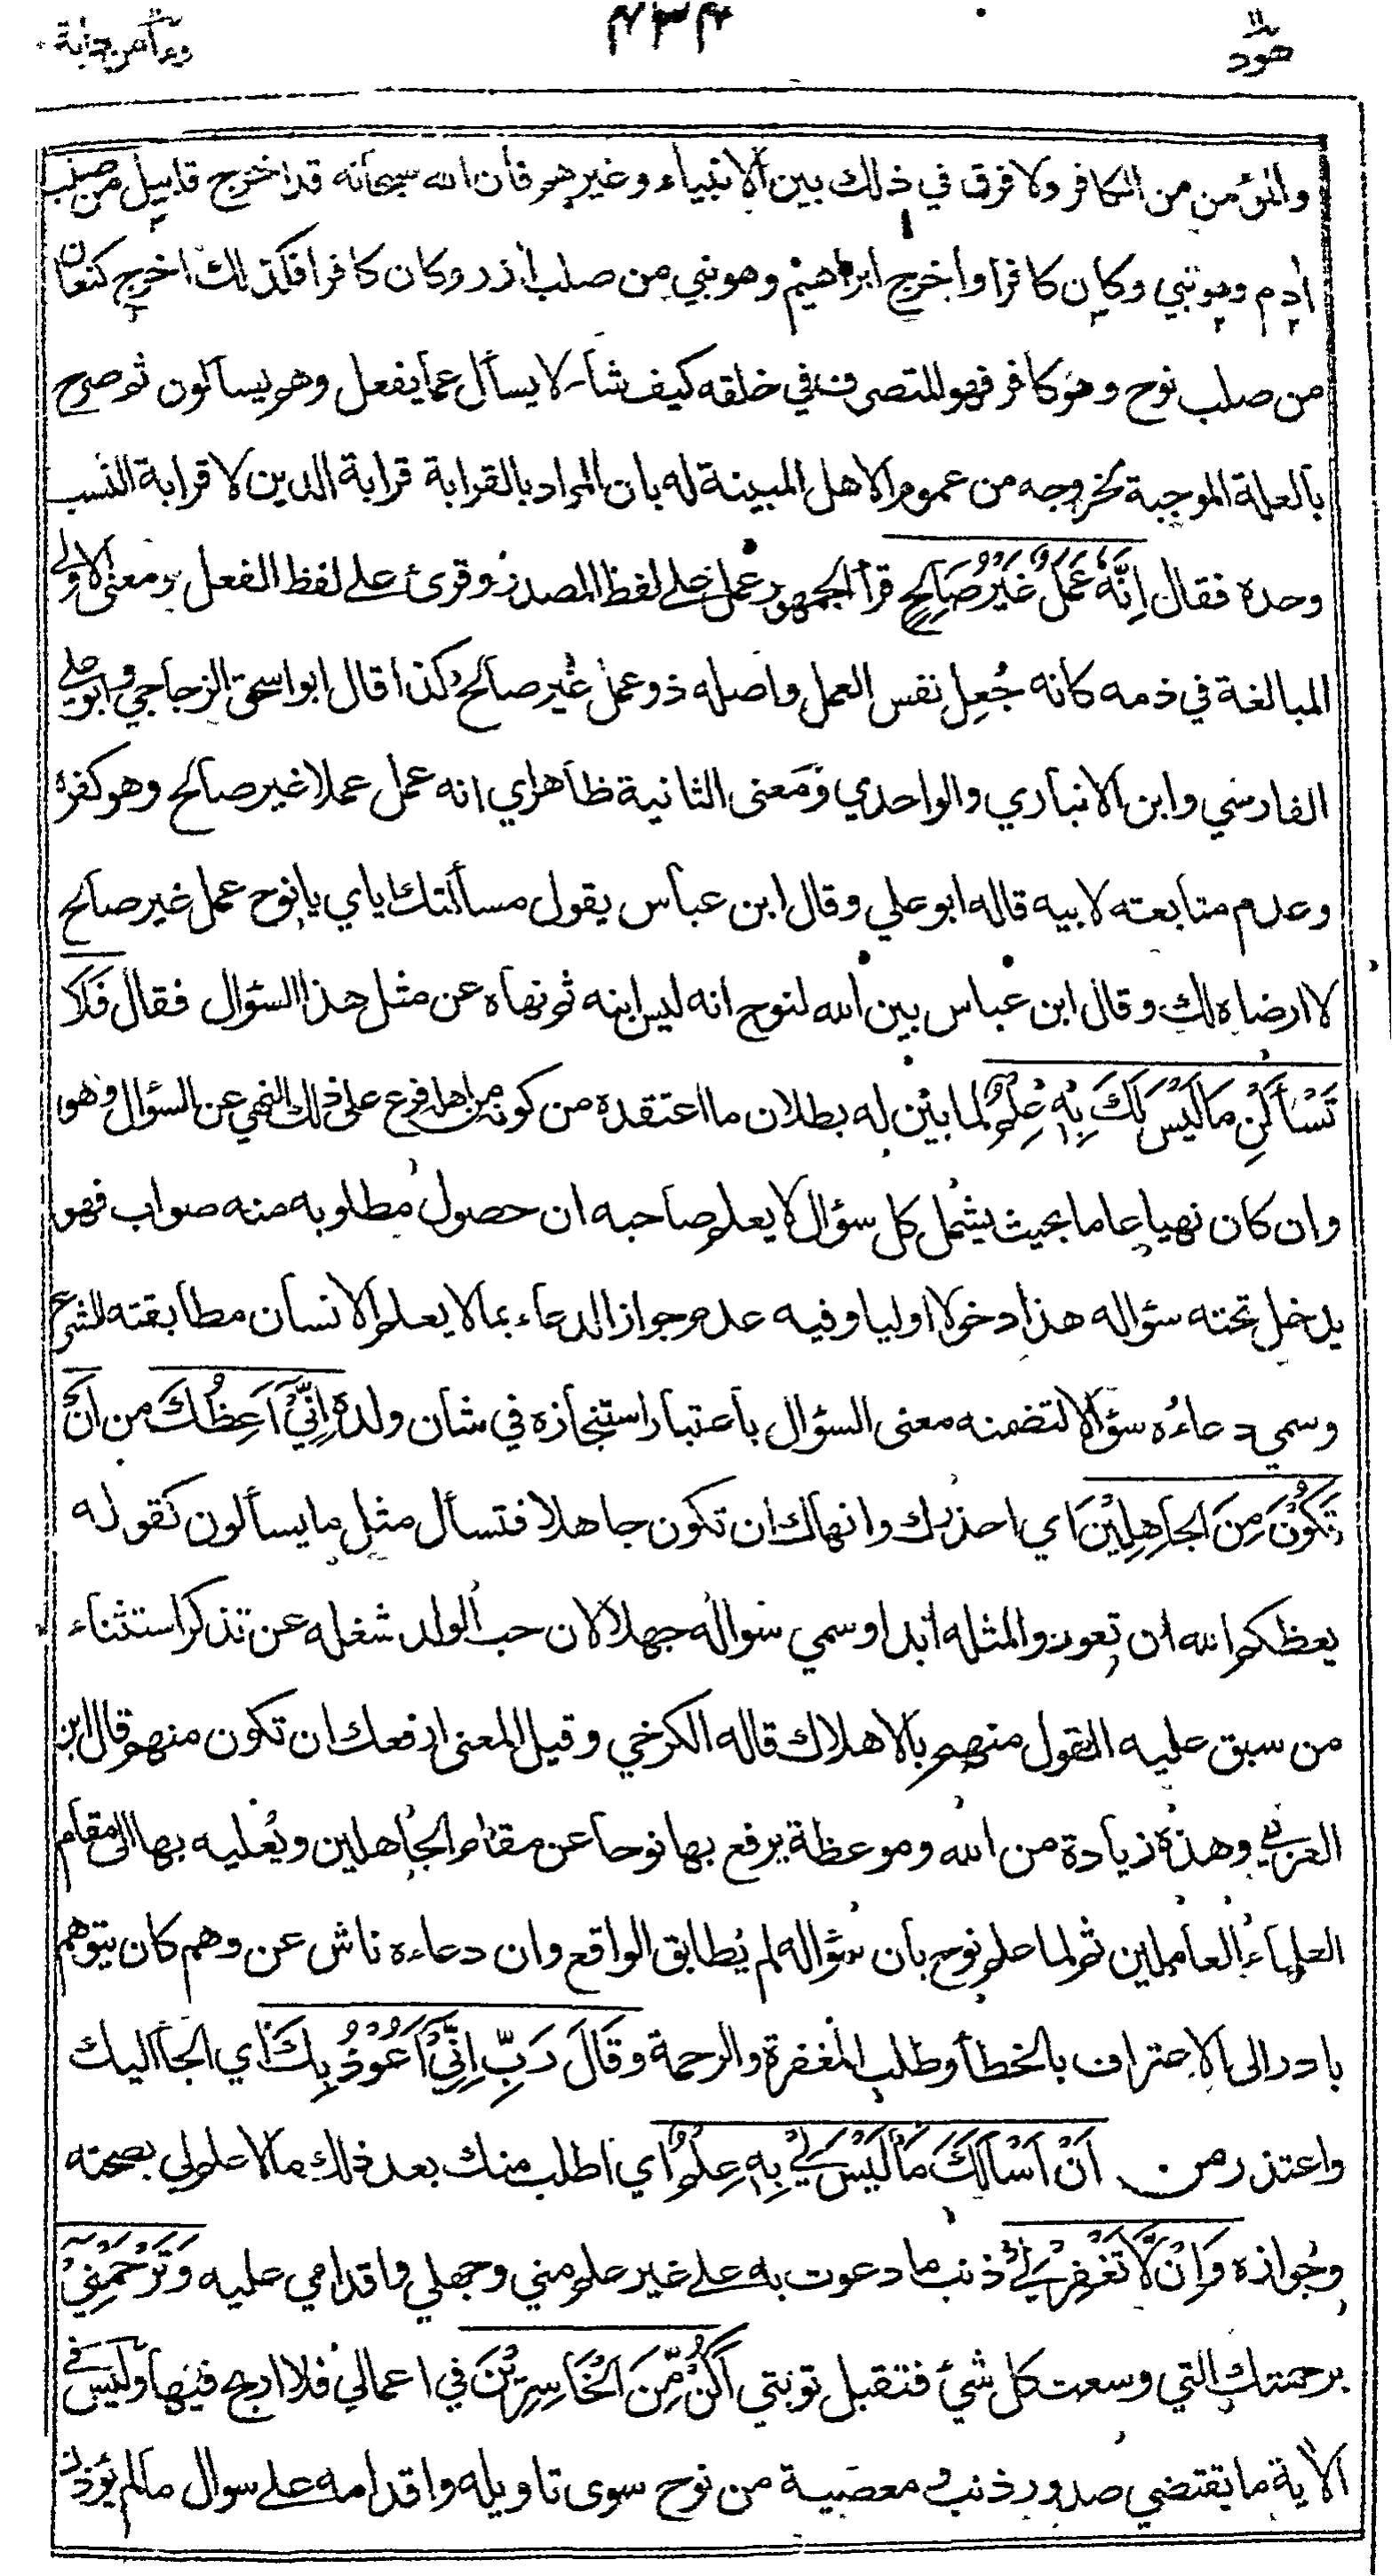 هود ٤٣٤ وما من دابة
والمؤمن من الكافر ولا فرق في ذلك بين الانبياء وغيرهم فان الله سبحانه قد اخرج قابيل من صلب
ادم وهو نبي وكان كافرا واخرج ابراهيم وهو نبي من صلب ازر وكان كافرا فكذلك اخرج كنعان
من صلب نوح وهو كافر فهو المتصرف في خلقه كيف شاء لا يسأل عما يفعل وهم يسألون ثم صرح
بالعلة الموجبة لخروجه من عموم الاهل المبينة له بان المراد بالقرابة قرابة الدين لا قرابة النسب
وحده فقال اِنَّهٗ عَمَلٌ غَيْرُ صَالِحٍ قرأ الجمهور عمل على لفظ المصدر وقرئ على لفظ الفعل ومعنى الاولى
المبالغة في ذمه كانه جُعِل نفس العمل واصله ذو عمل غير صالح كذا قال ابو اسحق الزجاجي وابو علي
الفارسي وابن الانباري والواحدي ومعنى الثانية ظاهر اي انه عمل عملا غير صالح وهو كفره
وعدم متابعته لابيه قاله ابو علي وقال ابن عباس يقول مسألتك اياي يا نوح عمل غير صالح
لا ارضاه لك وقال ابن عباس بين الله لنوح انه ليس ابنه ثم نهاه عن مثل هذا السؤال فقال فَلَا
تَسْأَلْنِ مَا لَيْسَ لَكَ بِهٖ عِلْمٌ لما بين له بطلان ما اعتقده من كونه من اهله فرع على ذلك النهي عن السؤال وهو
وان كان نهيا عاما بحيث يشمل كل سؤال لا يعلم صاحبه ان حصول مطلوبه منه صواب فهو
يدخل تحته سؤاله هذا دخولا اوليا وفيه عدم جواز الدعاء بما لا يعلم الانسان مطابقته للشرع
وسمي دعاءه سؤالا لتضمنه معنى السؤال باعتبار استنجازه في شان ولده اِنِّيْ اَعِظُكَ من اَنْ
تَكُوْنَ مِنَ الجَاهِلِيْنَ اي احذرك وانهاك ان تكون جاهلا فتسأل مثل ما يسألون كقوله
يعظكم الله ان تعودوا لمثله ابدا وسمي سواله جهلا لان حب الولد شغله عن تذكر استثناء
من سبق عليه القول منهم بالاهلاك قاله الكرخي وقيل المعنى ارفعك ان تكون منهم قال ابن
العربي وهذه زيادة من الله وموعظة يرفع بها نوحا عن مقام الجاهلين ويُعليه بها الى مقام
العلماء العاملين ثم لما علم نوح بان سؤاله لم يُطابق الواقع وان دعاءه ناش عن وهم كان يتوهم
بادر الى الاعتراف بالخطأ وطلب المغفرة والرحمة وقَالَ رَبِّ اِنِّيْ اَعُوْذُ بِكَ اي الجأ اليك
واعتذر من اَنْ اَسْاَلَكَ مَا لَيْسَ لِيْ بِهٖ عِلْمٌ اي اطلب منك بعد ذلك ما لا علم لي بصحته
وجوازه وَاِنْ لَّا تَغْفِرْ لِيْ ذنب ما دعوت به على غير علم مني وجهلي واقدامي عليه وَتَرْحَمْنِيْ
برحمتك التي وسعت كل شئ فتقبل توبتي اَكُنْ مِّنَ الْخَاسِرِيْنَ في اعمالي فلا اربح فيها وليس في
الاية ما يقتضي صدور ذنب ومعصية من نوح سوى تاويله واقدامه على سوال ما لم يؤذن